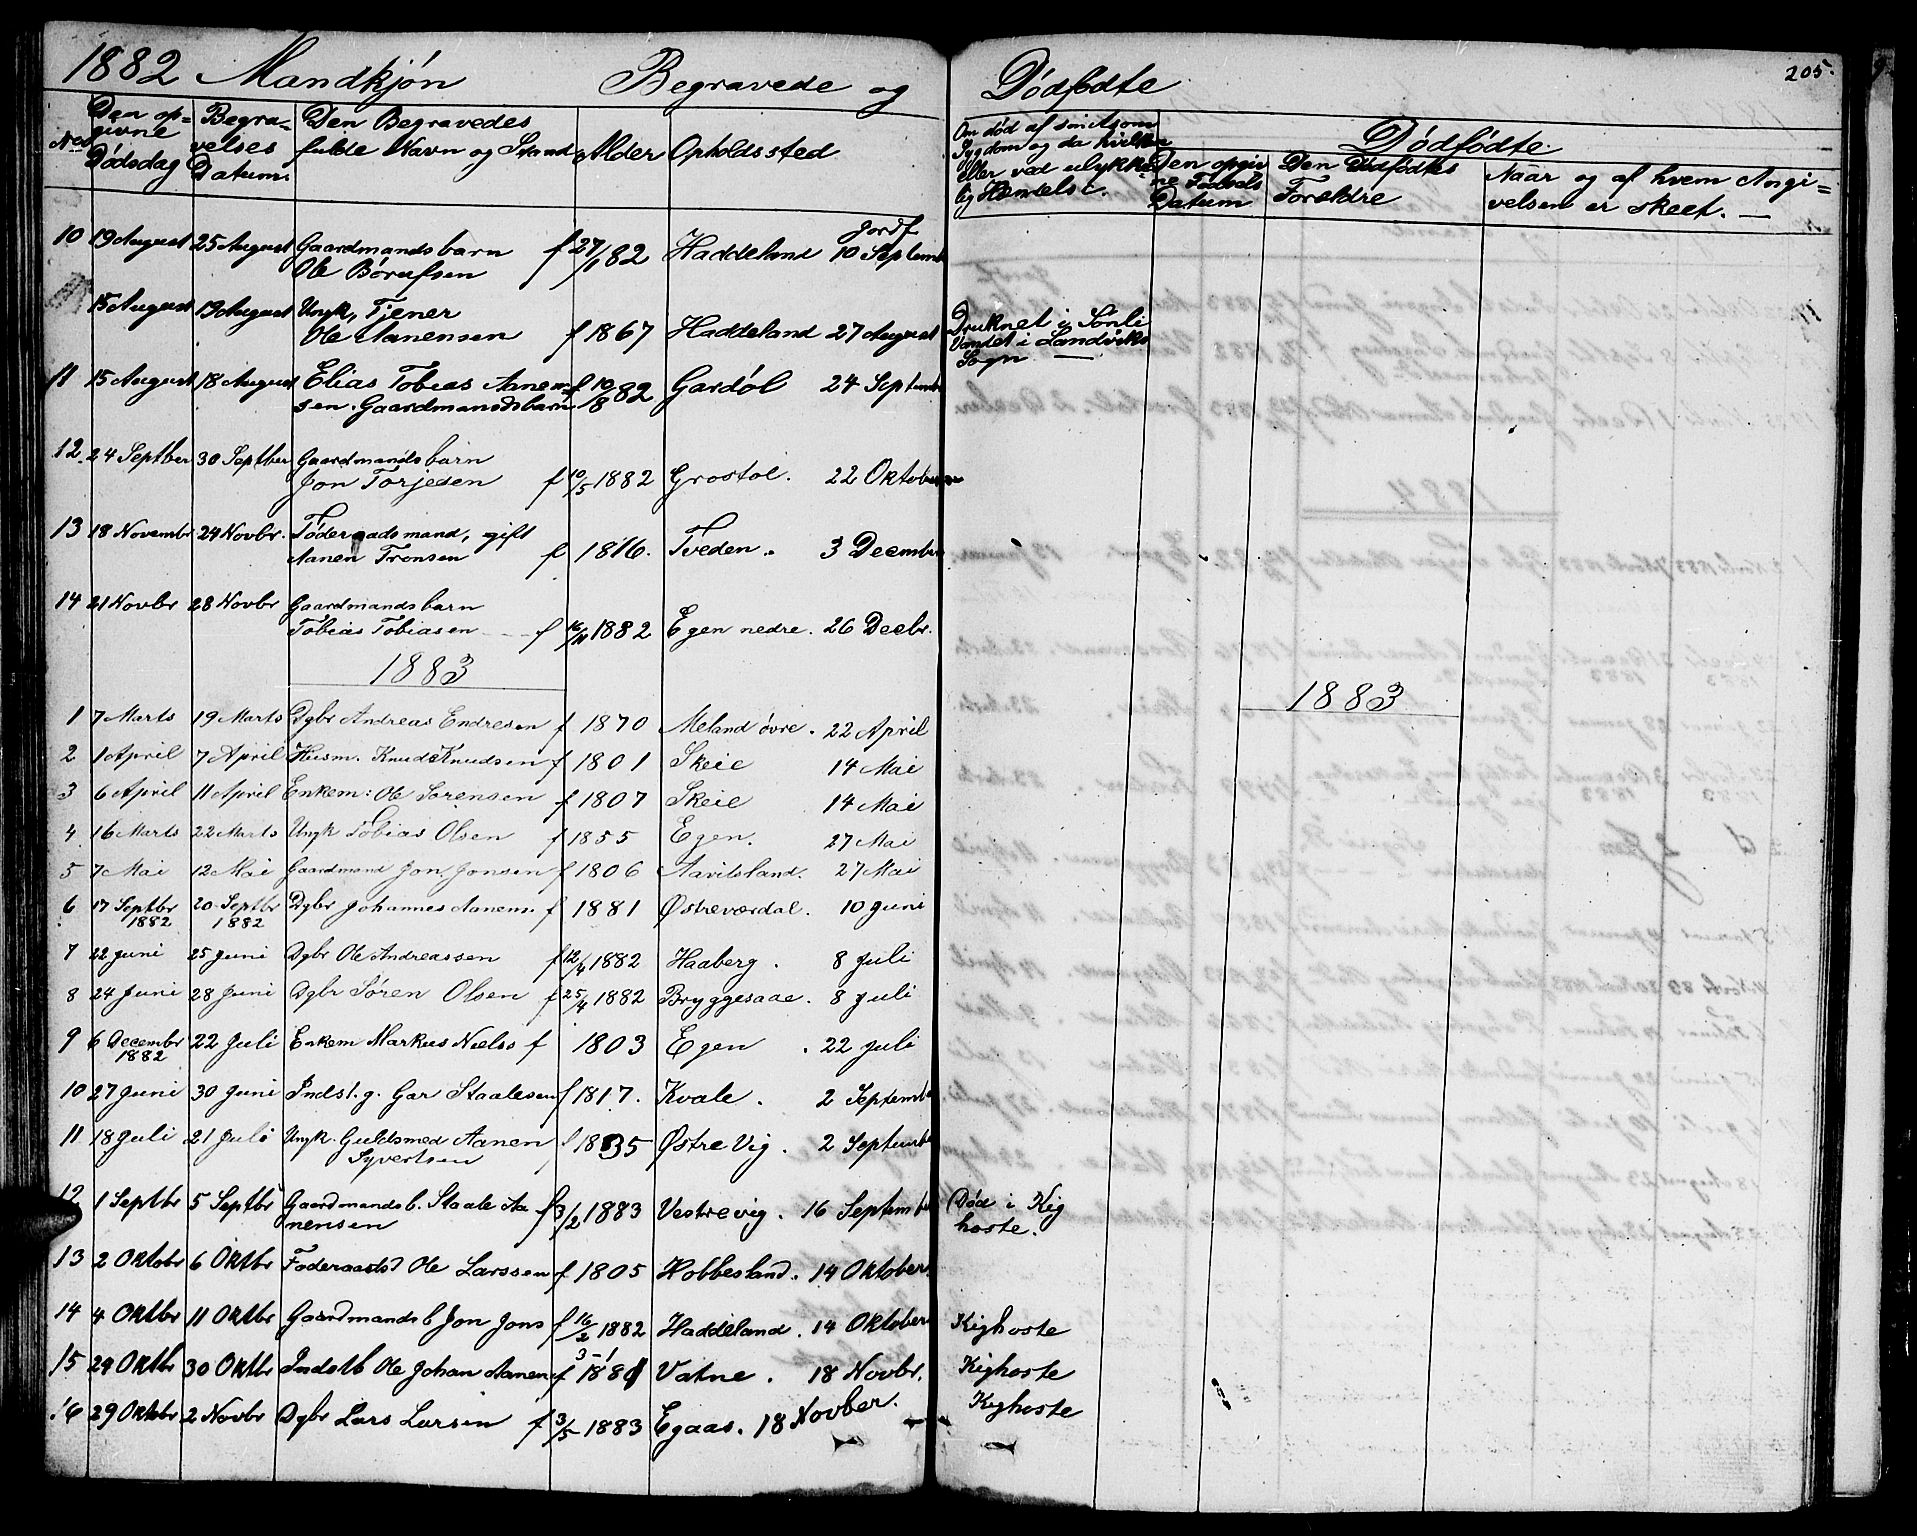 1882 Mandkjøn Begravede og Dødfødte 205.
Nº Den opgivne Dødsdag Begravelses Datum. Den Begravedes fulde Navn og Stand Alder Opholdssted Om død af smitsom Sygdom og da hvilken eller ved ulykkelig Hændelse. Den opgivne Fødsels Datum Den Dødfødtes Forældre Naar og af hvem Angivelsen er skeet. —
Dødfødte.
Jordf
10 19 August 25 August Gaardmandsbarn f 27/1 82 Haddeland 10 Septemb
Ole Børufsen
15 August 19 August Ungk, Tjener
Ole Aanensen f 1867 Haddeland 27 August Druknet i Sønli
Vandet i Landviks
Sogn —
11 15 August 18 August Elias Tobias Aanen= f 10/8 82 Gardøl 24 Septemb
sen. Gaardmandsbarn
12. 24 Septber 30 Septber Gaardmandsbarn
Jon Torjesen f 10/5 1882 Grostøl. 22 Oktober
13 18 Novembr 24 Novbr. Føderaadsmand, gift
Aanen Tronsen f 1816. Tveden. 3 Decembr
14 21 Novbr 28 Novbr Gaardmandsbarn
Tobias Tobiasen f 16/11 1882 Egen nedre. 26 Decbr.
1883 1883
1 7 Marts 19 Marts Dgbr Andreas Endresen f 1870 Meland øvre. 22 April
2 1 April 7 April Husm. Knud Knudsen f 1801 Skeie 14 Mai
3 6 April 11 April Enkem: Ole Sørensen f 1807 Skeie 14 Mai
4 16 Marts 22 Marts Ungk Tobias Olsen f 1855 Egen. 27 Mai
5 7 Mai 12 Mai Gaardmand Jon Jonsen f 1806 Aavitsland. 27 Mai
6 17 Septbr 20 Septbr Dgbr Johannes Aanens. f 1881 Østreværdal. 10 Juni
1882 1882
7 22 Juni 25 Juni Dgbr Ole Andreassen f 12/4 1882 Haaberg. 8 Juli
8 24 Juni 28 Juni Dgbr Søren Olsen f 25/4 1882 Bryggesaae. 8 Juli
9 6 Decembr 22 Juli Enkem Markus Niels f 1803 Egen. 22 Juli
1882
10 27 Juni 30 Juni Indst. g. Gar Staalesen f 1817. Kvale. 2 Septemb
11 18 Juli 21 Juli Ungk. Guldsmed Aanen f 1835 Østre Vig. 2 Septemb
Syvertsen
12 1 Septbr 5 Septbr Gaardmandsb. Staale Aa f 3/2 1883 Vestrevig. 16 Septemb Død i Kig
nensen hoste.
13 2 Oktobr 6 Oktbr Føderaadsd Ole Larssen f 1805 Hobbesland. 14 Oktober.
14 4 Oktbr 11 Oktbr Gaardmandsb Jon Jons f 16/2 1882 Haddeland. 14 Oktober Kighoste
15 24 Oktbr 30 Oktbr Indstb Ole Johan Aanen f 3-1 1881 Vatne. 18 Novbr. Kighoste
16 29 Oktobr 2 Novbr Dgbr Lars Larsen f 3/5 1883 Egaas. 18 Novber. Kighoste